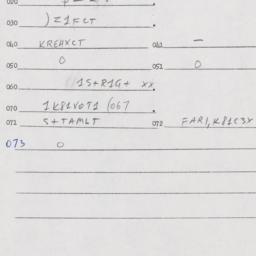 030 )Z1FCT
040 KREHXCT 041 —
050 O 051 O
060 1S+R1G+ XX
070 1K81V0T1 (067
071 S+TAMLT 072 FAR1,K81C3X
073 O